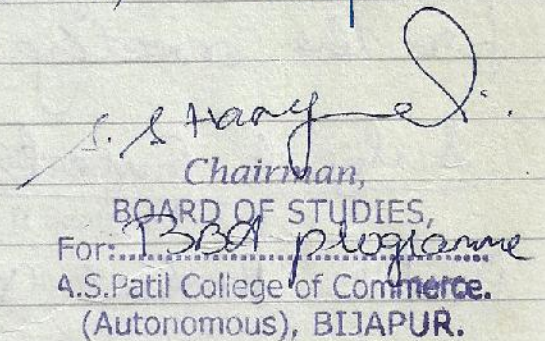 S. S
Chairman,
BOARD OF STUDIES,
For: BBA programme
A.S.Patil College of Commerce.
(Autonomous), BIJAPUR.